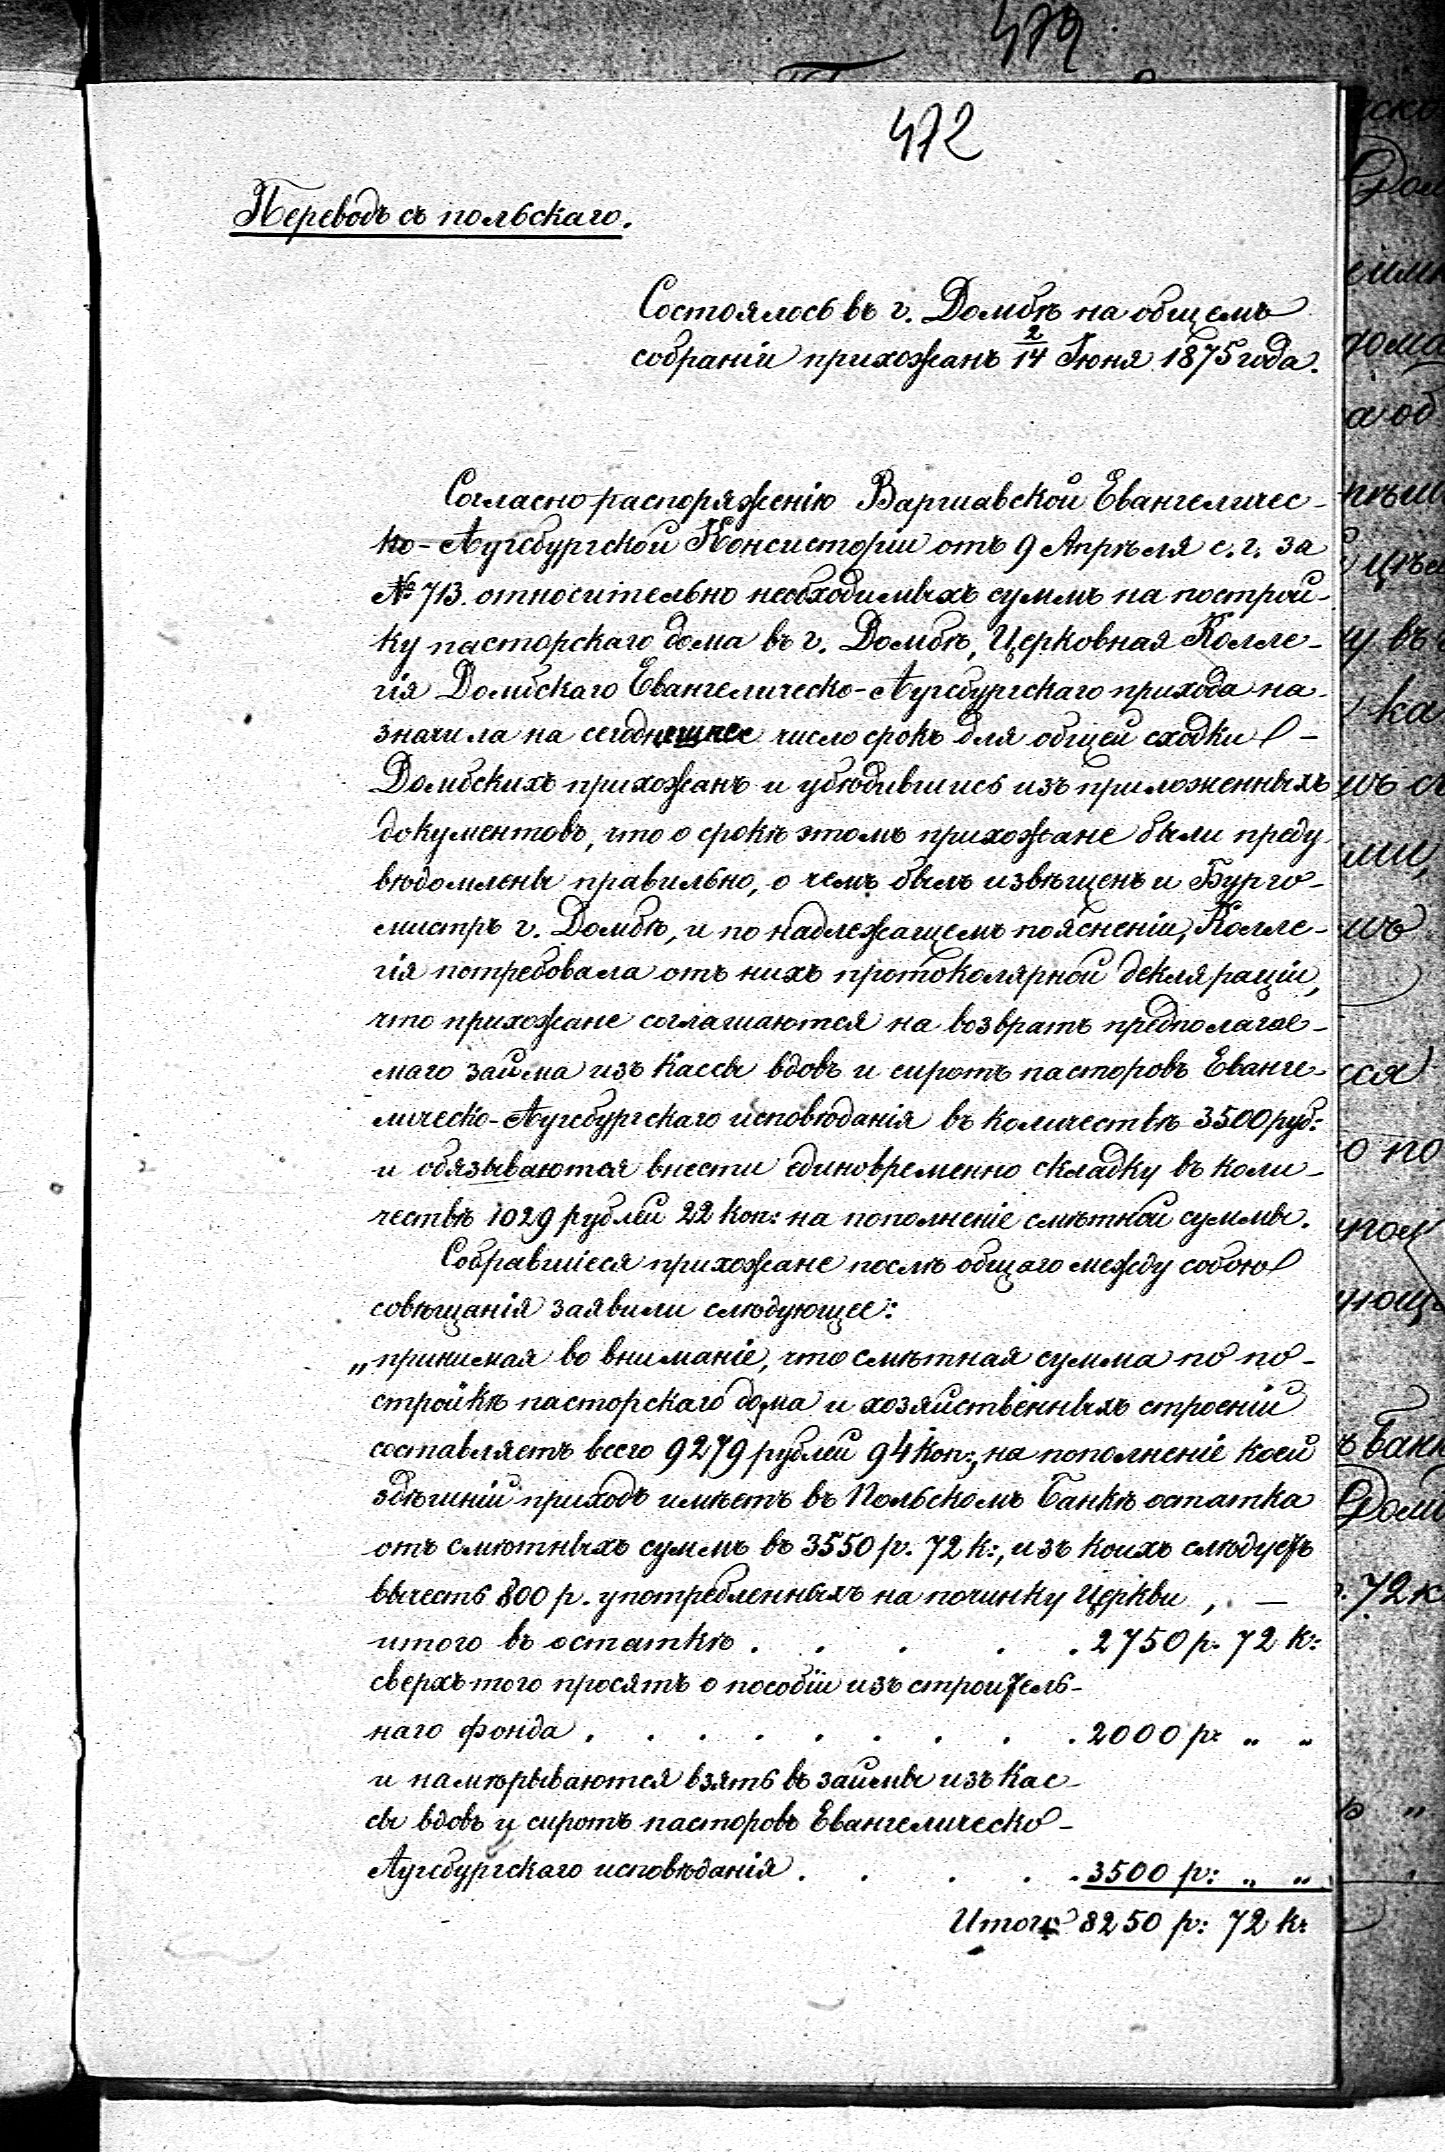 479
472
Переводъ съ польскаго.
Состоялось въ г. Домбѣ на общемъ
собраніи прихожанъ 2/14 Іюня 1875 года.
Согласно распоряженію Варшавской Евангеличес-
ко-Аугсбургской Консисторіи отъ 9 Апрѣля с. г. за
№ 713. относительно необходимыхъ суммъ на построй-
ку пасторскаго дома въ г. Домбѣ, Церковная Колле-
гія Домбскаго Евангелическо-Аугсбургскаго прихода на-
значила на сегоднешнее число срокъ для общей сходки -
Домбскихъ прихожанъ и убѣдившись изъ приложенныхъ
документовъ, что о срокѣ этомъ прихожане были преду
вѣдомлены правильно, о чемъ былъ извѣщенъ и Бурго-
мистръ г. Домбѣ, и по надлежащемъ поясненіи, Колле-
гія потребовала отъ нихъ протоколярной деклярaціи,
что прихожане соглашаются на возвратъ предполагае-
маго займа изъ Кассы вдовъ и сиротъ пасторовъ Еванге-
лическо-Аугсбургскаго исповѣданія въ количествѣ 3500 руб:
и обязываются внести единовременно складку въ коли-
чествѣ 1029 рублей 22 коп: на пополненіе смѣтной суммы.
Собравшіеся прихожане послѣ общаго между собою
совѣщанія заявили слѣдующее:
„принимая во вниманіе, что смѣтная сумма по по-
стройкѣ пасторскаго дома и хозяйственныхъ строеній
составляетъ всего 9279 рублей 94 коп:, на пополненіе коей
здѣшній приходъ имѣетъ въ Польскомъ Банкѣ остатка
отъ смѣтныхъ суммъ въ 3550 р. 72 к:, изъ коихъ слѣдуетъ
вычесть 800 р. употребленныхъ на починку Церкви, —
итого въ остаткѣ . . . . . 2750 р. 72 к:
сверхъ того просятъ о пособіи изъ строитель-
наго фонда . . . . . . . . . 2000 р: „ „
и намѣрываются взять въ займы изъ Кас-
сы вдовъ и сиротъ пасторовъ Евангелическо-
Аугсбургскаго исповѣданія . . . . . 3500 р: „ „
Итого 8250 р: 72 к: